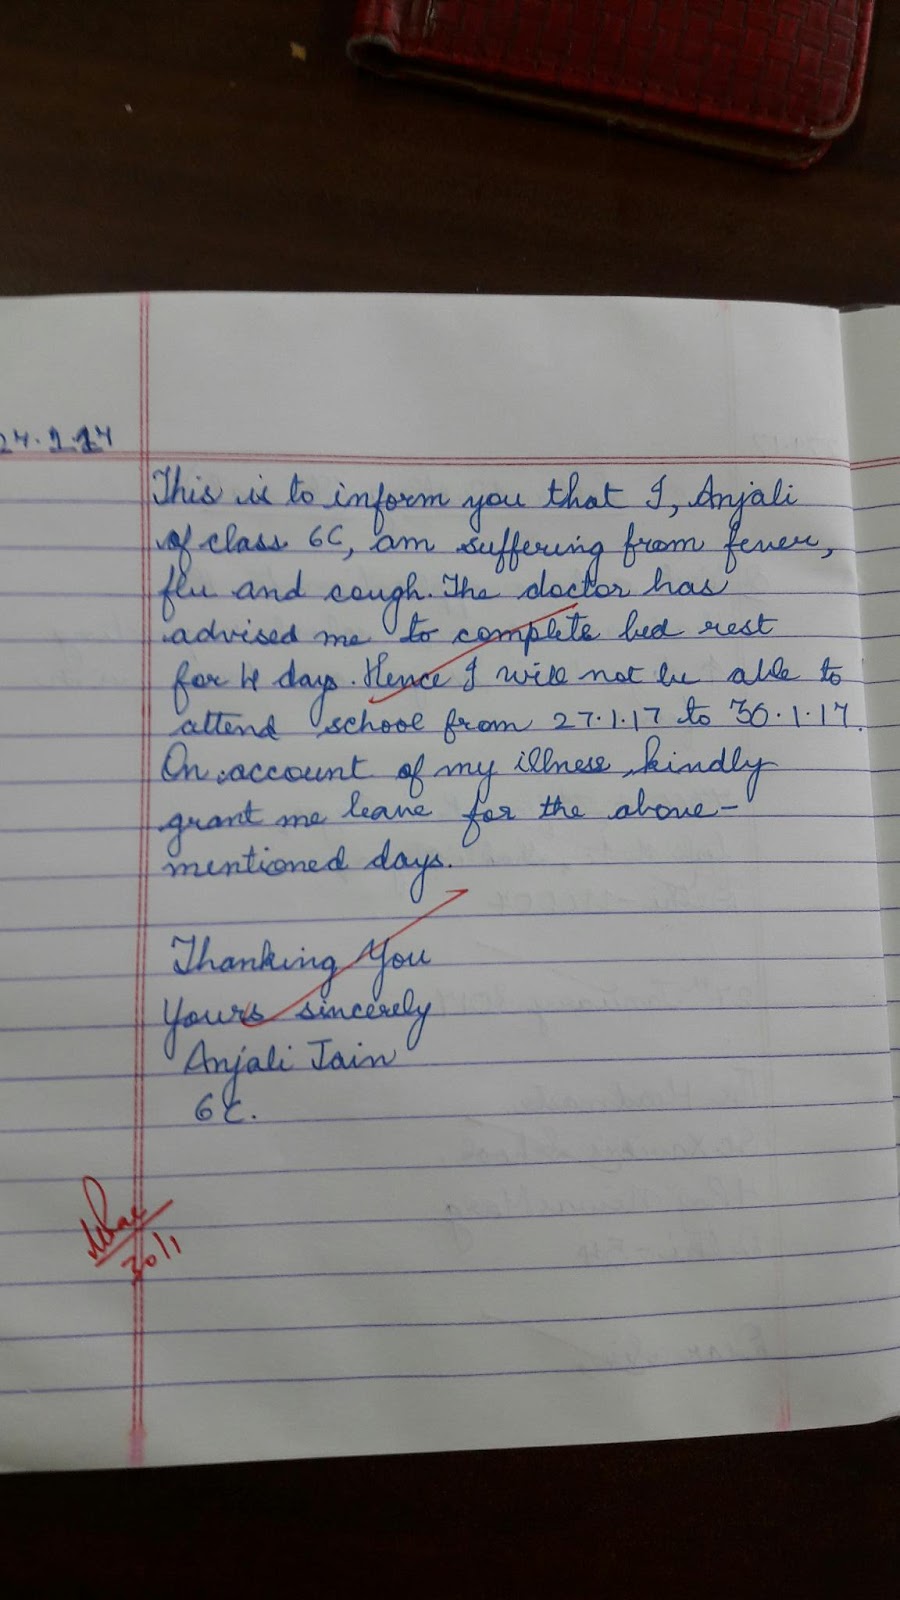 This is to inform you that I, Anjali
of class 6C, am suffering from fever,
flu and cough. The doctor has
advised me to complete bed rest
for 4 days. Hence I will not be able to
attend school from 27.1.17 to 30.1.17.
On account of my illness, kindly
grant me leave for the above-
mentioned days.
Thanking You
Yours sincerely
Anjali Jain
6C.
30/1